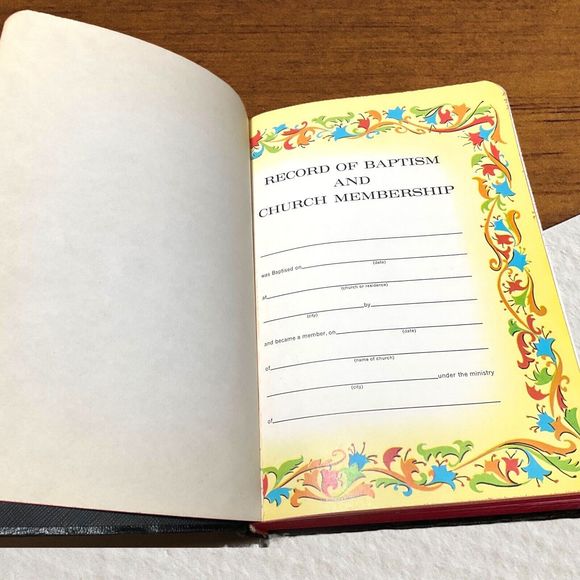 RECORD OF BAPTISM
AND
CHURCH MEMBERSHIP
was Baptised on
(date)
at
(church or residence)
by
(city)
and became a member, on
(date)
of
(name of church)
under the ministry
(city)
of